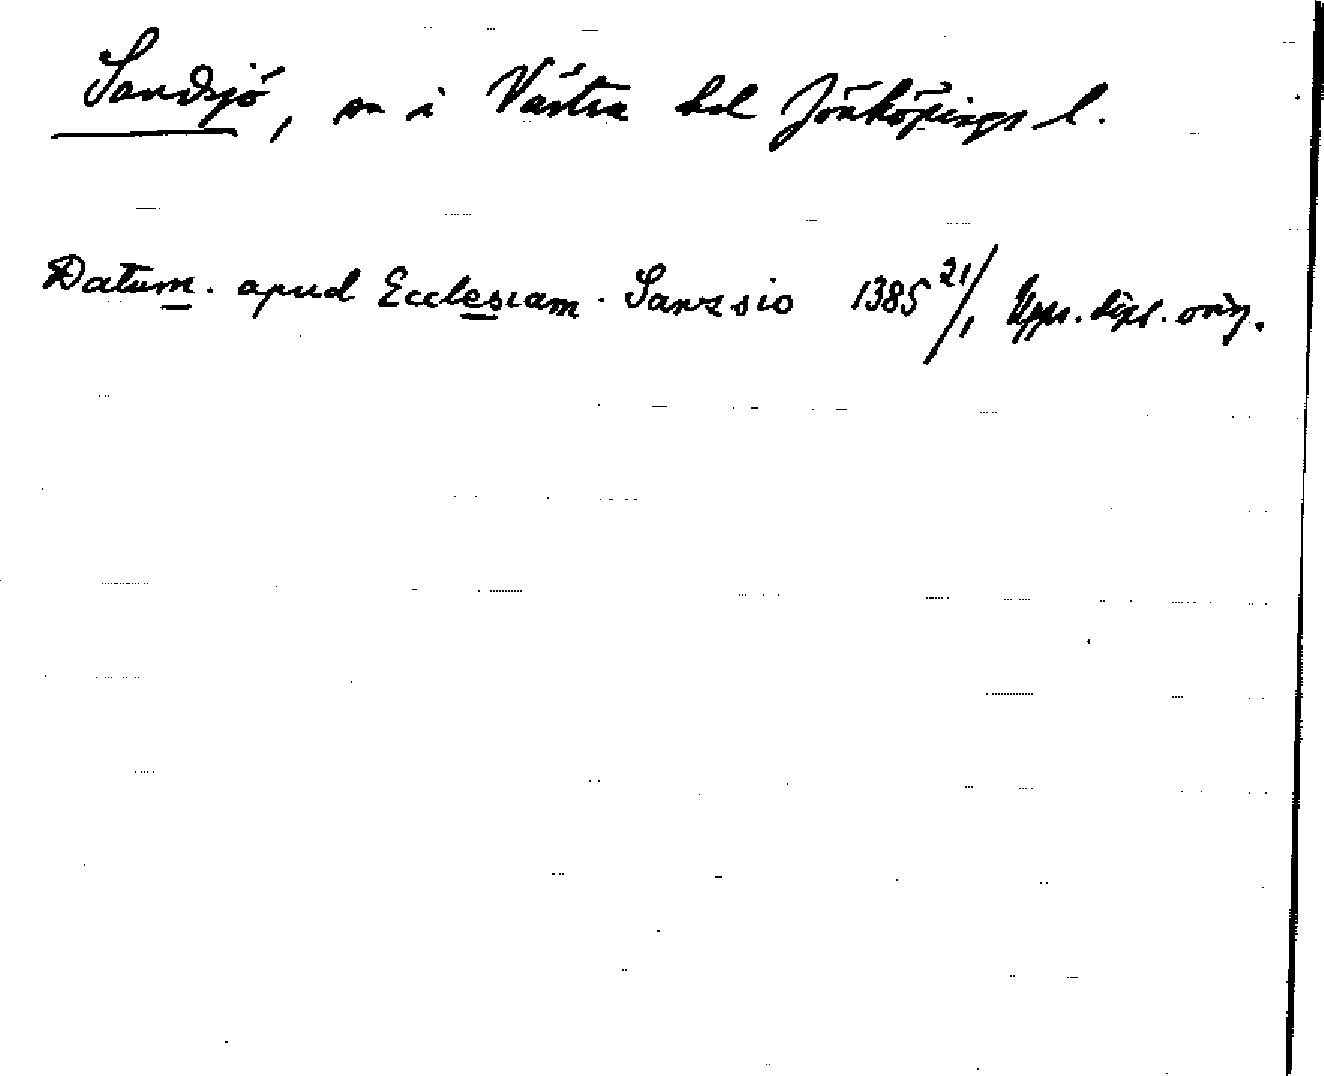 Sandsjö, sn i Västra hd Jönköpings l.
Datum. apud Ecclesiam. Sanzsio 1385 21/1 Upps. dipl. orig.